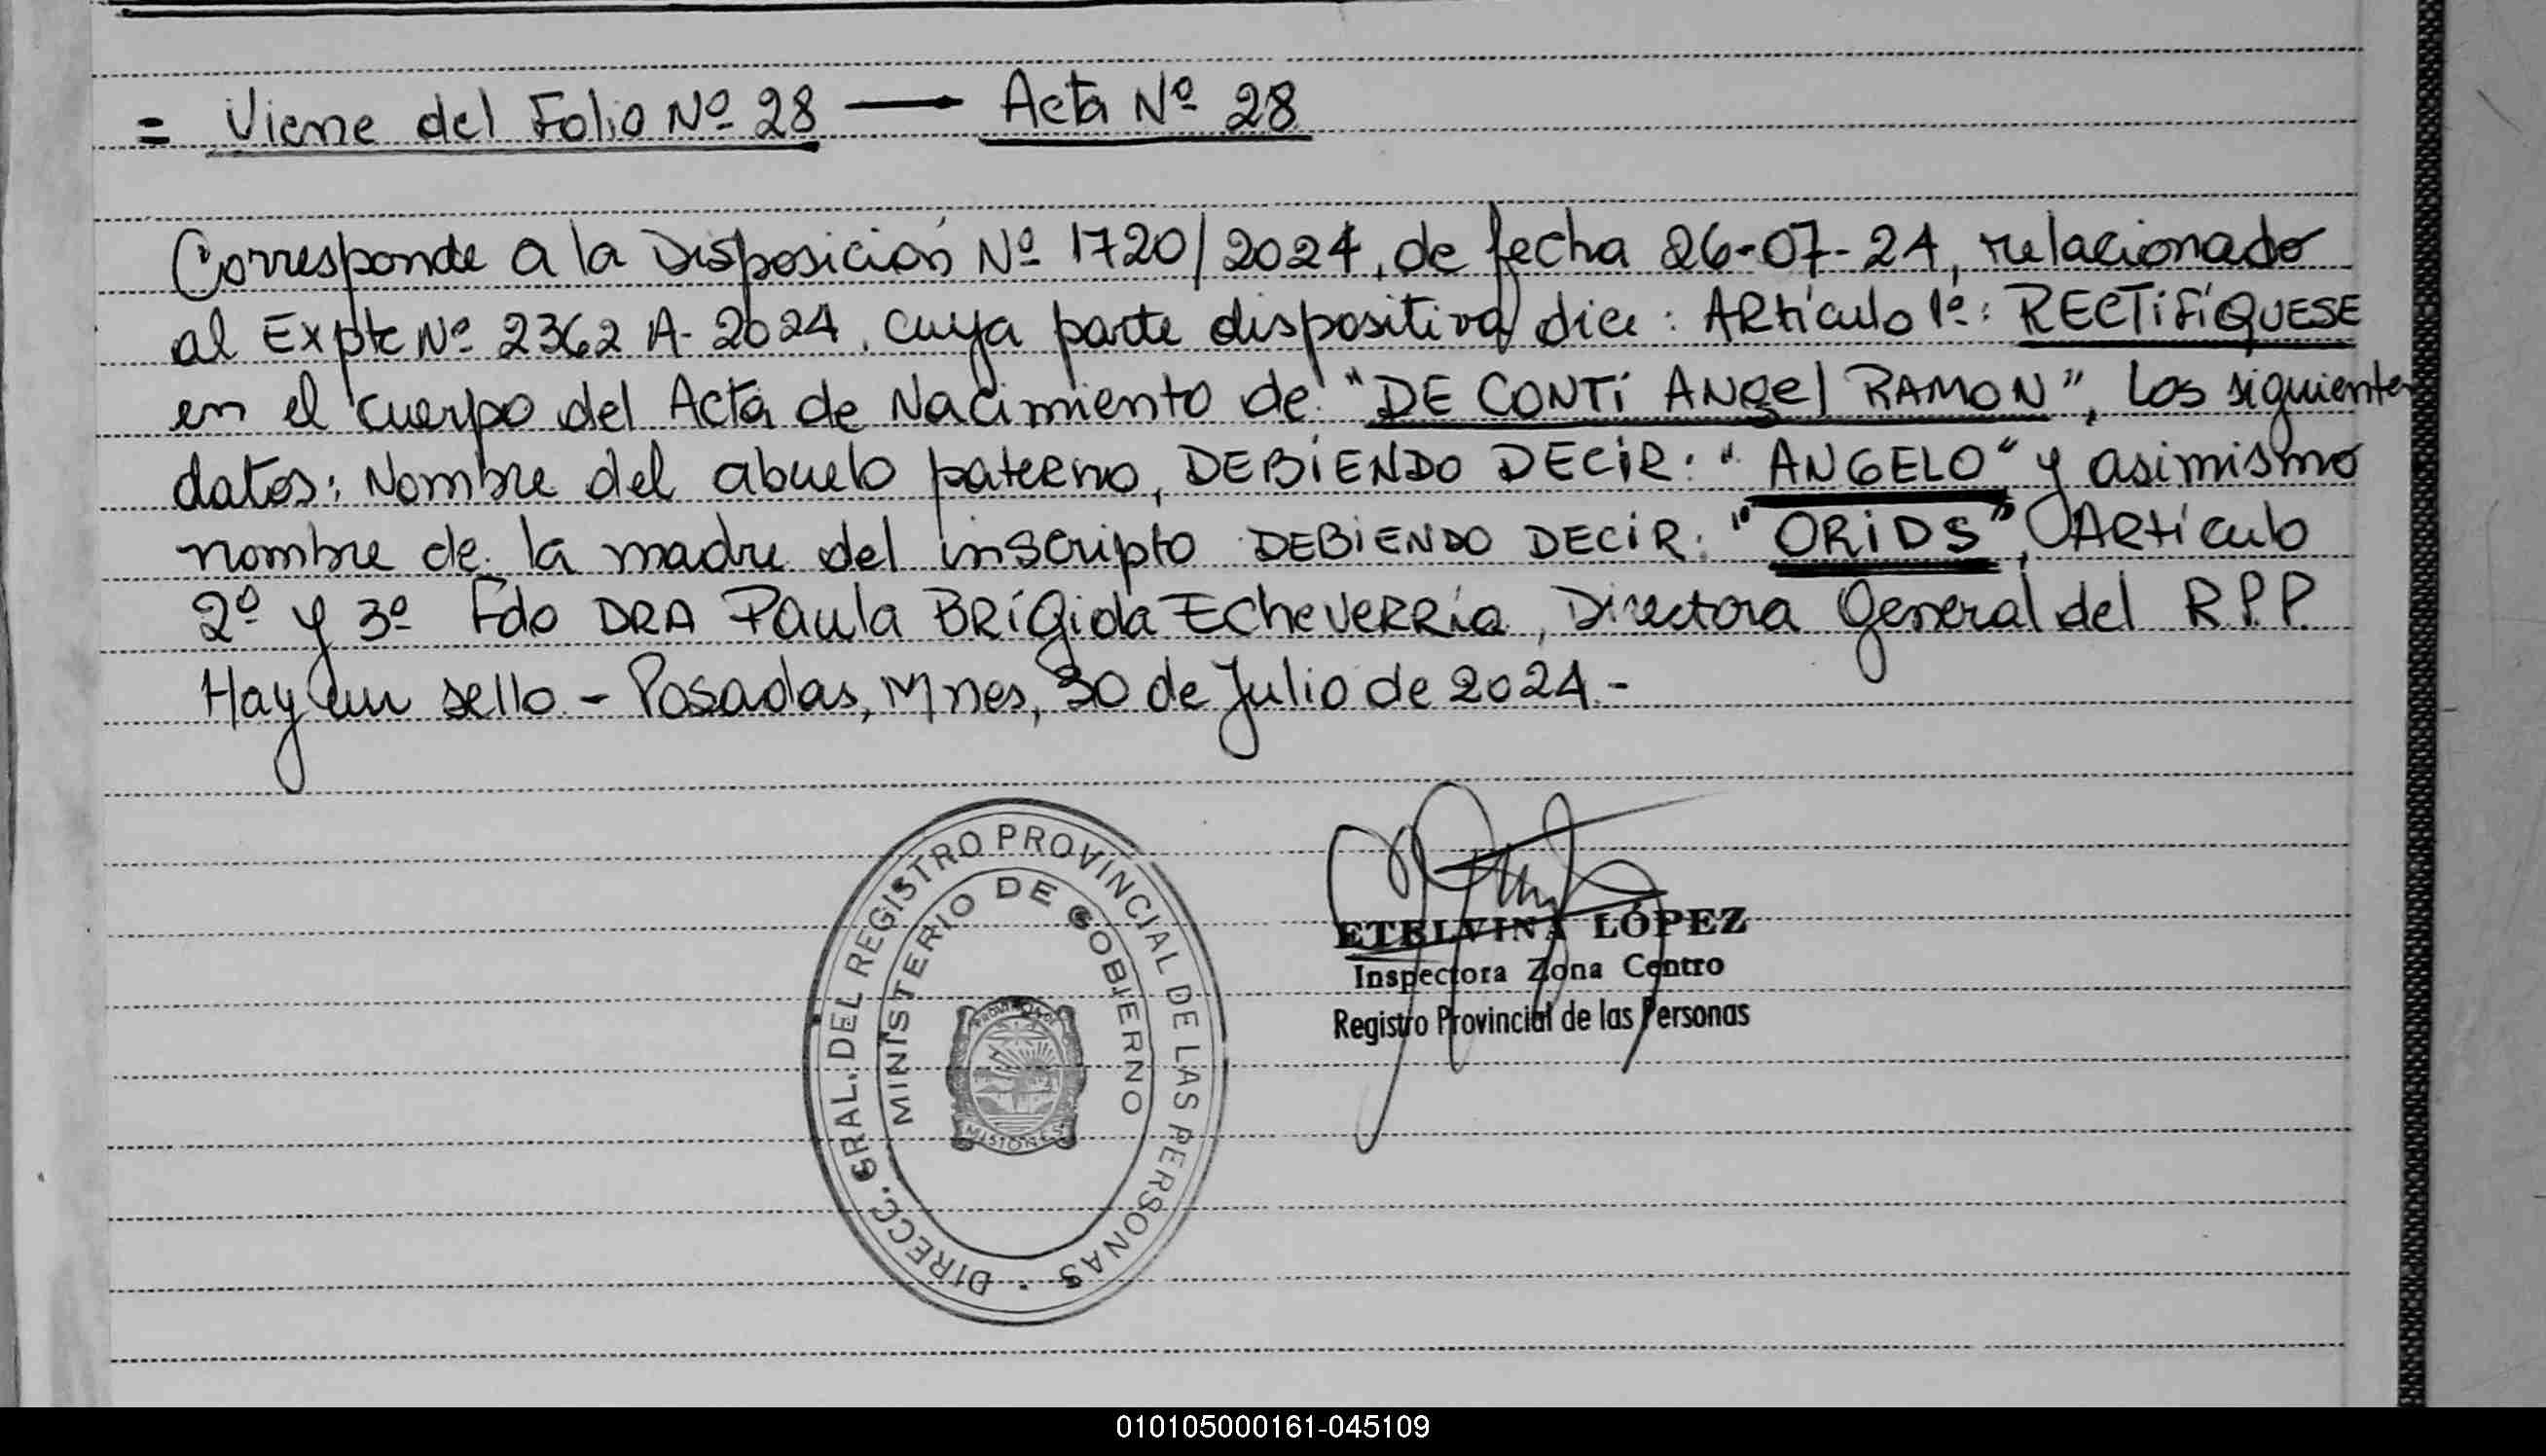 = Viene del Folio Nº 28 — Acta Nº 28
Corresponde a la Disposición Nº 1720/2024, de fecha 26-07-24, relacionado
al Expte Nº 2362 A- 2024, cuya parte dispositiva dice: ARtículo 1º: RECTiFíQUESE
en el cuerpo del Acta de Nacimiento de "DE CONTi ANgel RAMON", los siguientes
datos: Nombre del abuelo pateRno, DEBiENDO DECiR: "ANGELO" y asimismo
nombre de la madre del inscripto DEBiENDO DECiR: "ORiDS", ARtículo
2º y 3º Fdo DRA Paula BRígida EcheveRRía, Directora General del R.P.P.
Hay un sello - Posadas, Mnes, 30 de Julio de 2024.-
DIRECC. GRAL. DEL REGISTRO PROVINCIAL DE LAS PERSONAS
MINISTERIO DE GOBIERNO
PROVINCIA DE
MISIONES
ETELVINA LÓPEZ
Inspectora Zona Centro
Registro Provincial de las Personas
010105000161-045109